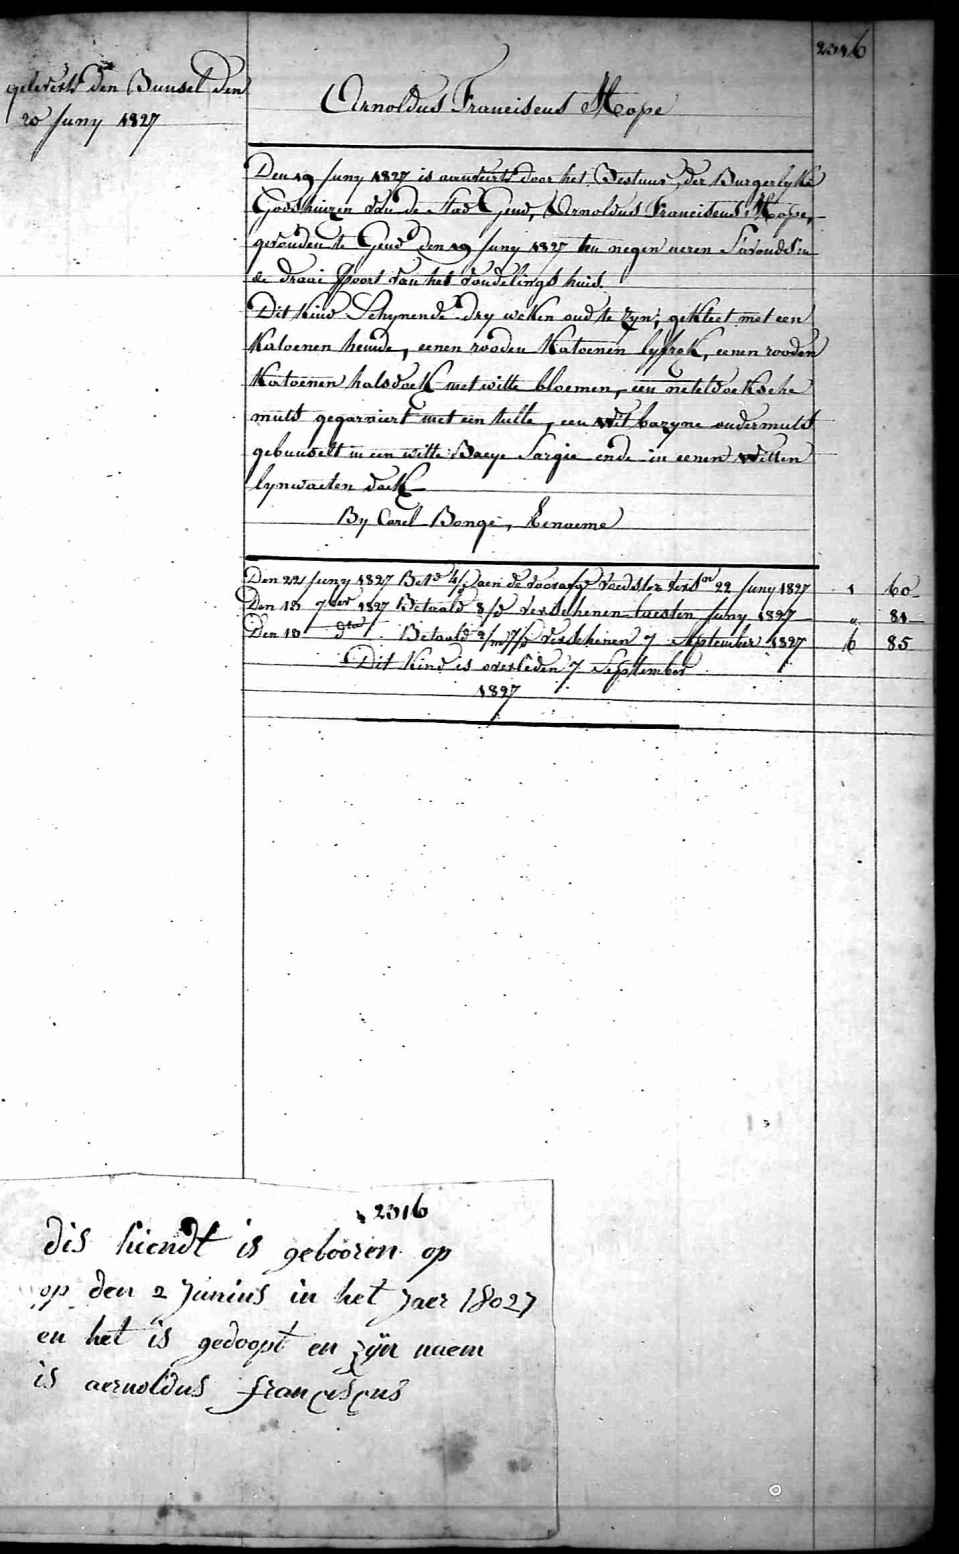 2316
gelevert den Bunsel den
20 Juny 1827
Arnoldus Franciscus Hope
Den 19 Juny 1827 is aenveert door het Bestuur der Burgerlyke
Godshuizen van de Stad Gend, Arnoldus Franciscus Hope,
gevonden te Gend den 19 Juny 1827 ten negen ueren S'avonds in
de draai Poort van het Vondelings huis.
Dit Kind Schynende dry weken oud te zyn, gekleet met een
Katoenen hemde, eenen rooden Katoenen lyfrok, eenen rooden
Katoenen halsdoek met witte bloemen, een neteldoeksche
muts gegarniert met een tulle, een wit bazyne ondermuts
gebunselt in een witte Baeye Sargie ende in eenen Witten
lynwaeten doek
By Carel Bonge, Renaeme
Den 22 Juny 1827 Bet.d aen de voorafge Voedster 22 Juny 1827 1 60
Den 18 7ber 1827 Betaald 8/d verschenen laesten Juny 1827 " 81
Den 18 dto Betaald 2/m 7/d verschenen 7 September 1827 6 85
Dit Kind is overleden 7 September
1827
2316
dis kiendt is gebooren op
op den 2 Junius in het Jaer 18027
en het is gedoopt en zijn naem
is aernoldus franciscus